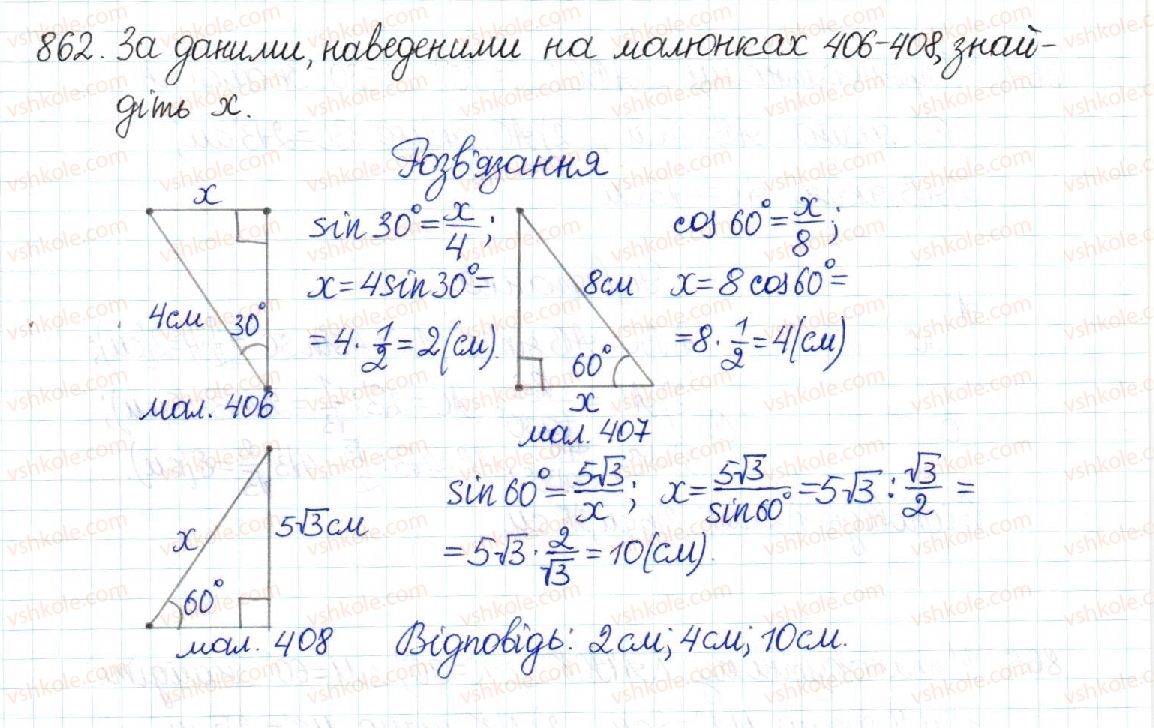 862. За даними, наведеними на малюнках 406-408, знай-
діть x.
Розв'язання
x
4см
30°
мал. 406
sin 30° = x/4;
x = 4 sin 30° =
= 4 · 1/2 = 2 (см).
8см
60°
x
мал. 407
cos 60° = x/8;
x = 8 cos 60° =
= 8 · 1/2 = 4 (см)
x
5√3 см
60°
мал. 408
sin 60° = 5√3/x; x = 5√3/sin 60° = 5√3 : √3/2 =
= 5√3 · 2/√3 = 10 (см).
Відповідь: 2 см; 4 см; 10 см.
vshkole.com